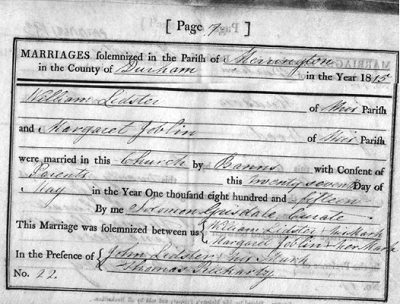 [ Page 7
MARRIAGES solemnized in the Parish of Merrington
in the County of Durham in the Year 1815
William Lidster of this Parish
and Margaret Joblin of this Parish
were married in this Church by Banns with Consent of
Parents this twenty second Day of
May in the Year One thousand eight hundred and fifteen
By me Solomon Grisdale Curate
This Marriage was solemnized between us { William Lidster his Mark
Margaret Joblin her Mark
In the Presence of { John Lidster his Mark
Thomas
No. 22.